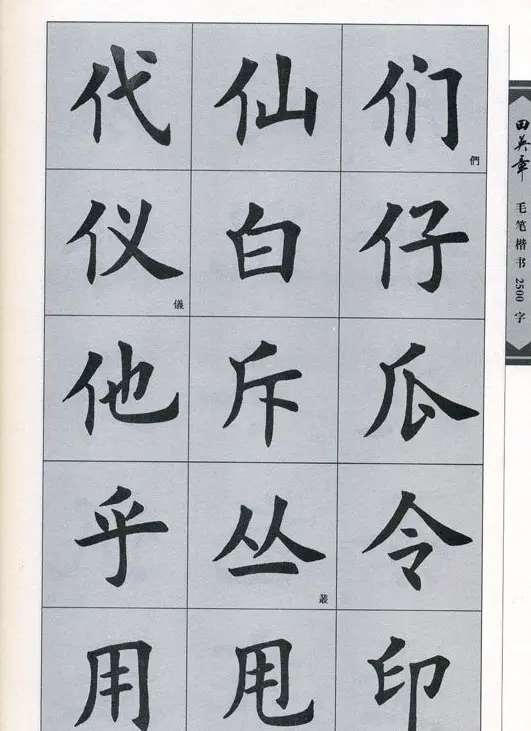 代仙们
們
仪白仔
儀
他斥瓜
乎丛令
叢
用甩印
田英章 毛笔楷书2500字